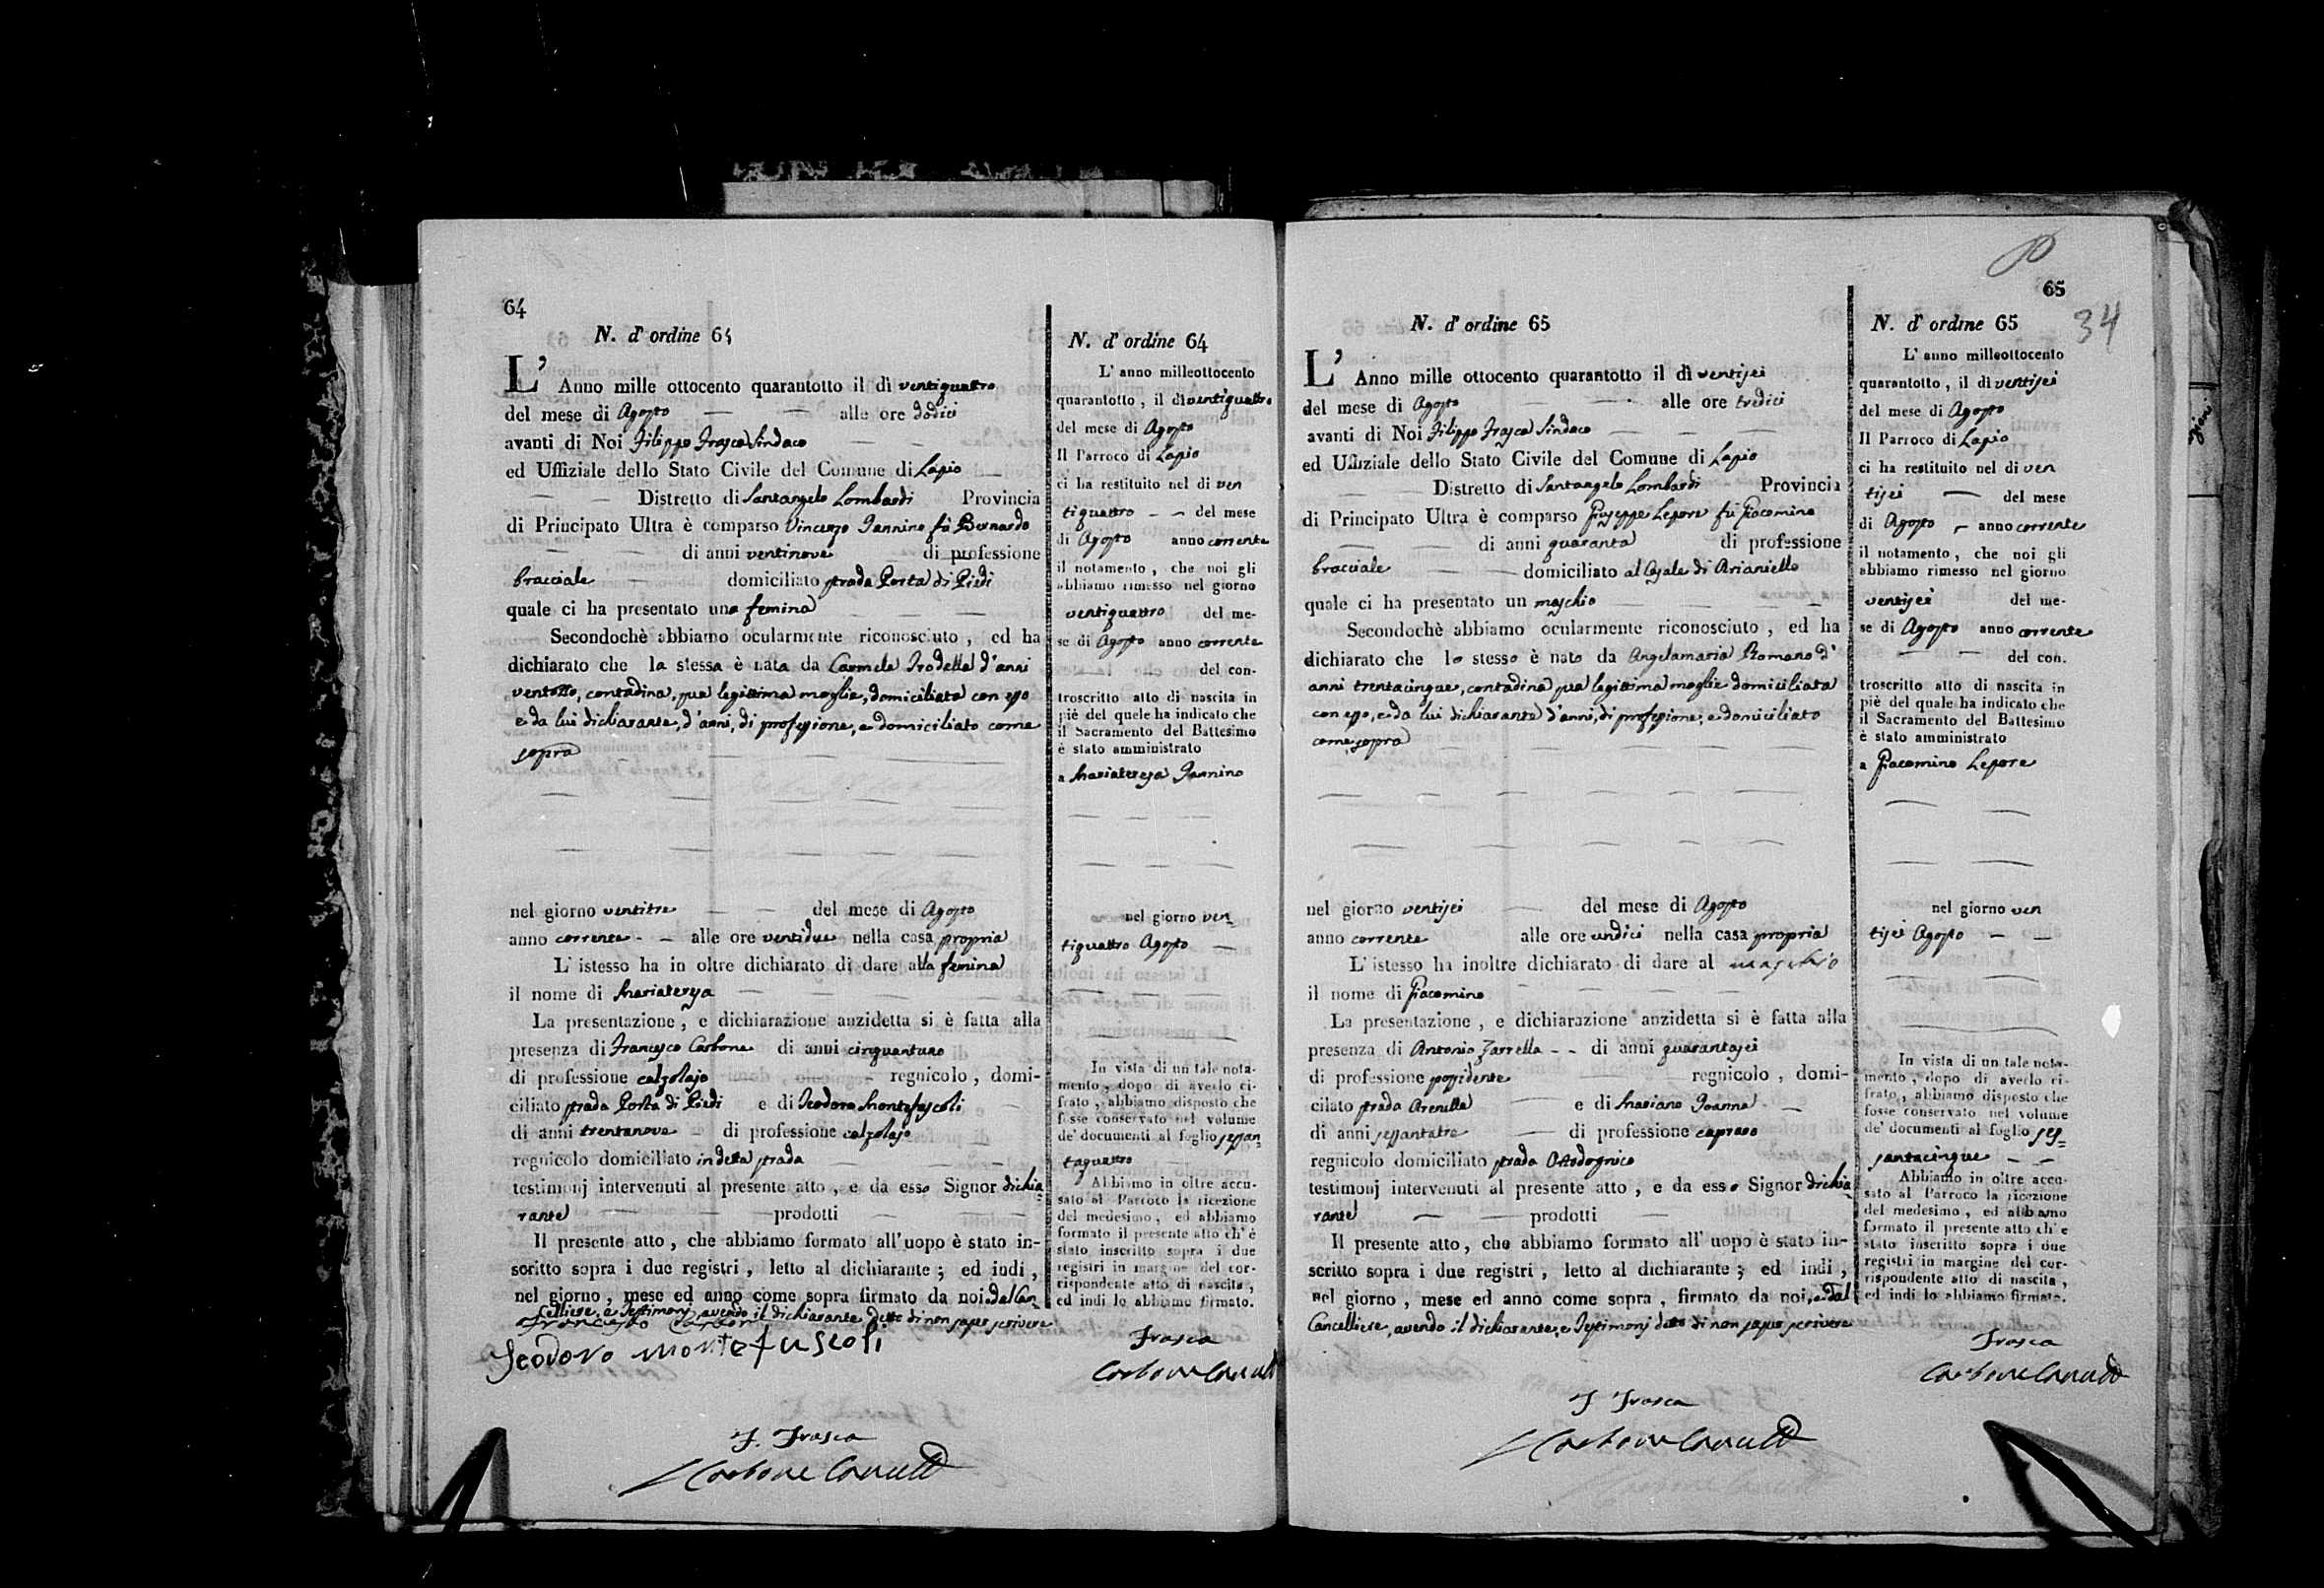 64
N. d' ordine 64
L' Anno mille ottocento quarantotto il dì ventiquattro
del mese di Agosto alle ore dodici
avanti di Noi Filippo Frasca Sindaco
ed Uffiziale dello Stato Civile del Comune di Lapio
Distretto di Santangelo Lombardi Provincia
di Principato Ultra è comparso Vincenzo Iannino fù Bernardo
di anni ventinove di professione
bracciale domiciliato strada Porta di Piedi
quale ci ha presentato una femina
Secondochè abbiamo ocularmente riconosciuto, ed ha
dichiarato che la stessa è nata da Carmela Trodella d'anni
ventotto, contadina, sua legittima moglie, domiciliata con esso
e da lui dichiarante, d'anni, di professione, e domiciliato come
sopra
nel giorno ventitre del mese di Agosto
anno corrente alle ore ventidue nella casa propria
L' istesso ha in oltre dichiarato di dare alla femina
il nome di Mariateresa
La presentazione, e dichiarazione anzidetta si è fatta alla
presenza di Francesco Carbone di anni cinquantuno
di professione calzolajo regnicolo, domi-
ciliato strada Porta di Piedi e di Teodoro Montefuscoli
di anni trentanove di professione calzolajo
regnicolo domiciliato in detta strada
testimonj intervenuti al presente atto, e da esso Signor dichia-
rante prodotti
Il presente atto, che abbiamo formato all'uopo è stato in-
scritto sopra i due registri, letto al dichiarante; ed indi,
nel giorno, mese ed anno come sopra firmato da noi dal Can-
celliere, e Testimonj avendo il dichiarante detto di non saper scrivere
Francesco Carbone
Teodoro Montefuscoli
F. Frasca
Carbone
N. d' ordine 64
L' anno milleottocento
quarantotto, il dì ventiquattro
del mese di Agosto
Il Parroco di Lapio
ci ha restituito nel di ven
tiquattro del mese
di Agosto anno corrente
il notamento, che noi gli
abbiamo rimesso nel giorno
ventiquattro del me-
se di Agosto anno corrente
del con-
troscritto atto di nascita in
piè del quele ha indicato che
il Sacramento del Battesimo
è stato amministrato
a Mariateresa Iannino
nel giorno ven-
tiquattro Agosto
In vista di un tale nota-
mento, dopo di averlo ci-
frato, abbiamo disposto che
fosse conservato nel volume
de' documenti al foglio sessan-
taquattro
Abbiamo in oltre accu-
sato al Parroco la ricezione
del medesimo, ed abbiamo
formato il presente atto ch' è
stato inscritto sopra i due
registri in margine del cor-
rispondente atto di nascita,
ed indi lo abbiamo firmato.
Frasca
Carbone
65
34
N. d' ordine 65
L' Anno mille ottocento quarantotto il dì ventisei
del mese di Agosto alle ore tredici
avanti di Noi Filippo Frasca Sindaco
ed Uffiziale dello Stato Civile del Comune di Lapio
Distretto di Santangelo Lombardi Provincia
di Principato Ultra è comparso Giuseppe Lepore fù Giacomino
di anni quaranta di professione
bracciale domiciliato al Casale di Arianiello
quale ci ha presentato un maschio
Secondochè abbiamo ocularmente riconosciuto, ed ha
dichiarato che lo stesso è nato da Angelamaria Romano d'
anni trentacinque, contadina sua legittima moglie domiciliata
con esso, e da lui dichiarante d'anni, di professione, e domiciliato
come sopra
nel giorno ventisei del mese di Agosto
anno corrente alle ore undici nella casa propria
L' istesso ha inoltre dichiarato di dare al maschio
il nome di Giacomino
La presentazione, e dichiarazione anzidetta si è fatta alla
presenza di Antonio Zarrella di anni quarantasei
di professione possidente regnicolo, domi-
cilato strada Arenella e di Mariano Ioanna
di anni sessantatre di professione capraro
regnicolo domiciliato strada
testimonj intervenuti al presente atto, e da esso Signor dichia-
rante prodotti
Il presente atto, che abbiamo formato all' uopo è stato in-
scritto sopra i due registri, letto al dichiarante; ed indi,
nel giorno, mese ed anno come sopra, firmato da noi, e dal
Cancelliere, avendo il dichiarante, e Testimonj detto di non saper scrivere
F Frasca
Carbone
N. d' ordine 65
L' anno milleottocento
quarantotto, il dì ventisei
del mese di Agosto
Il Parroco di Lapio
ci ha restituito nel di ven
tisei del mese
di Agosto anno corrente
il notamento, che noi gli
abbiamo rimesso nel giorno
ventisei del me-
se di Agosto anno corrente
del con.
troscritto atto di nascita in
piè del quale ha indicato che
il Sacramento del Battesimo
è stato amministrato
a Giacomino Lepore
nel giorno ven
tisei Agosto
In vista di un tale nota-
mento, dopo di averlo ci-
frato, abbiamo disposto che
fosse conservato nel volume
de' documenti al foglio ses-
santacinque
Abbiamo in oltre accu-
sato al Parroco la ricezione
del medesimo, ed abbiamo
formato il presente atto ch' è
stato inscritto sopra i due
registri in margine del cor-
rispondente atto di nascita,
ed indi lo abbiamo firmato.
Frasca
Carbone